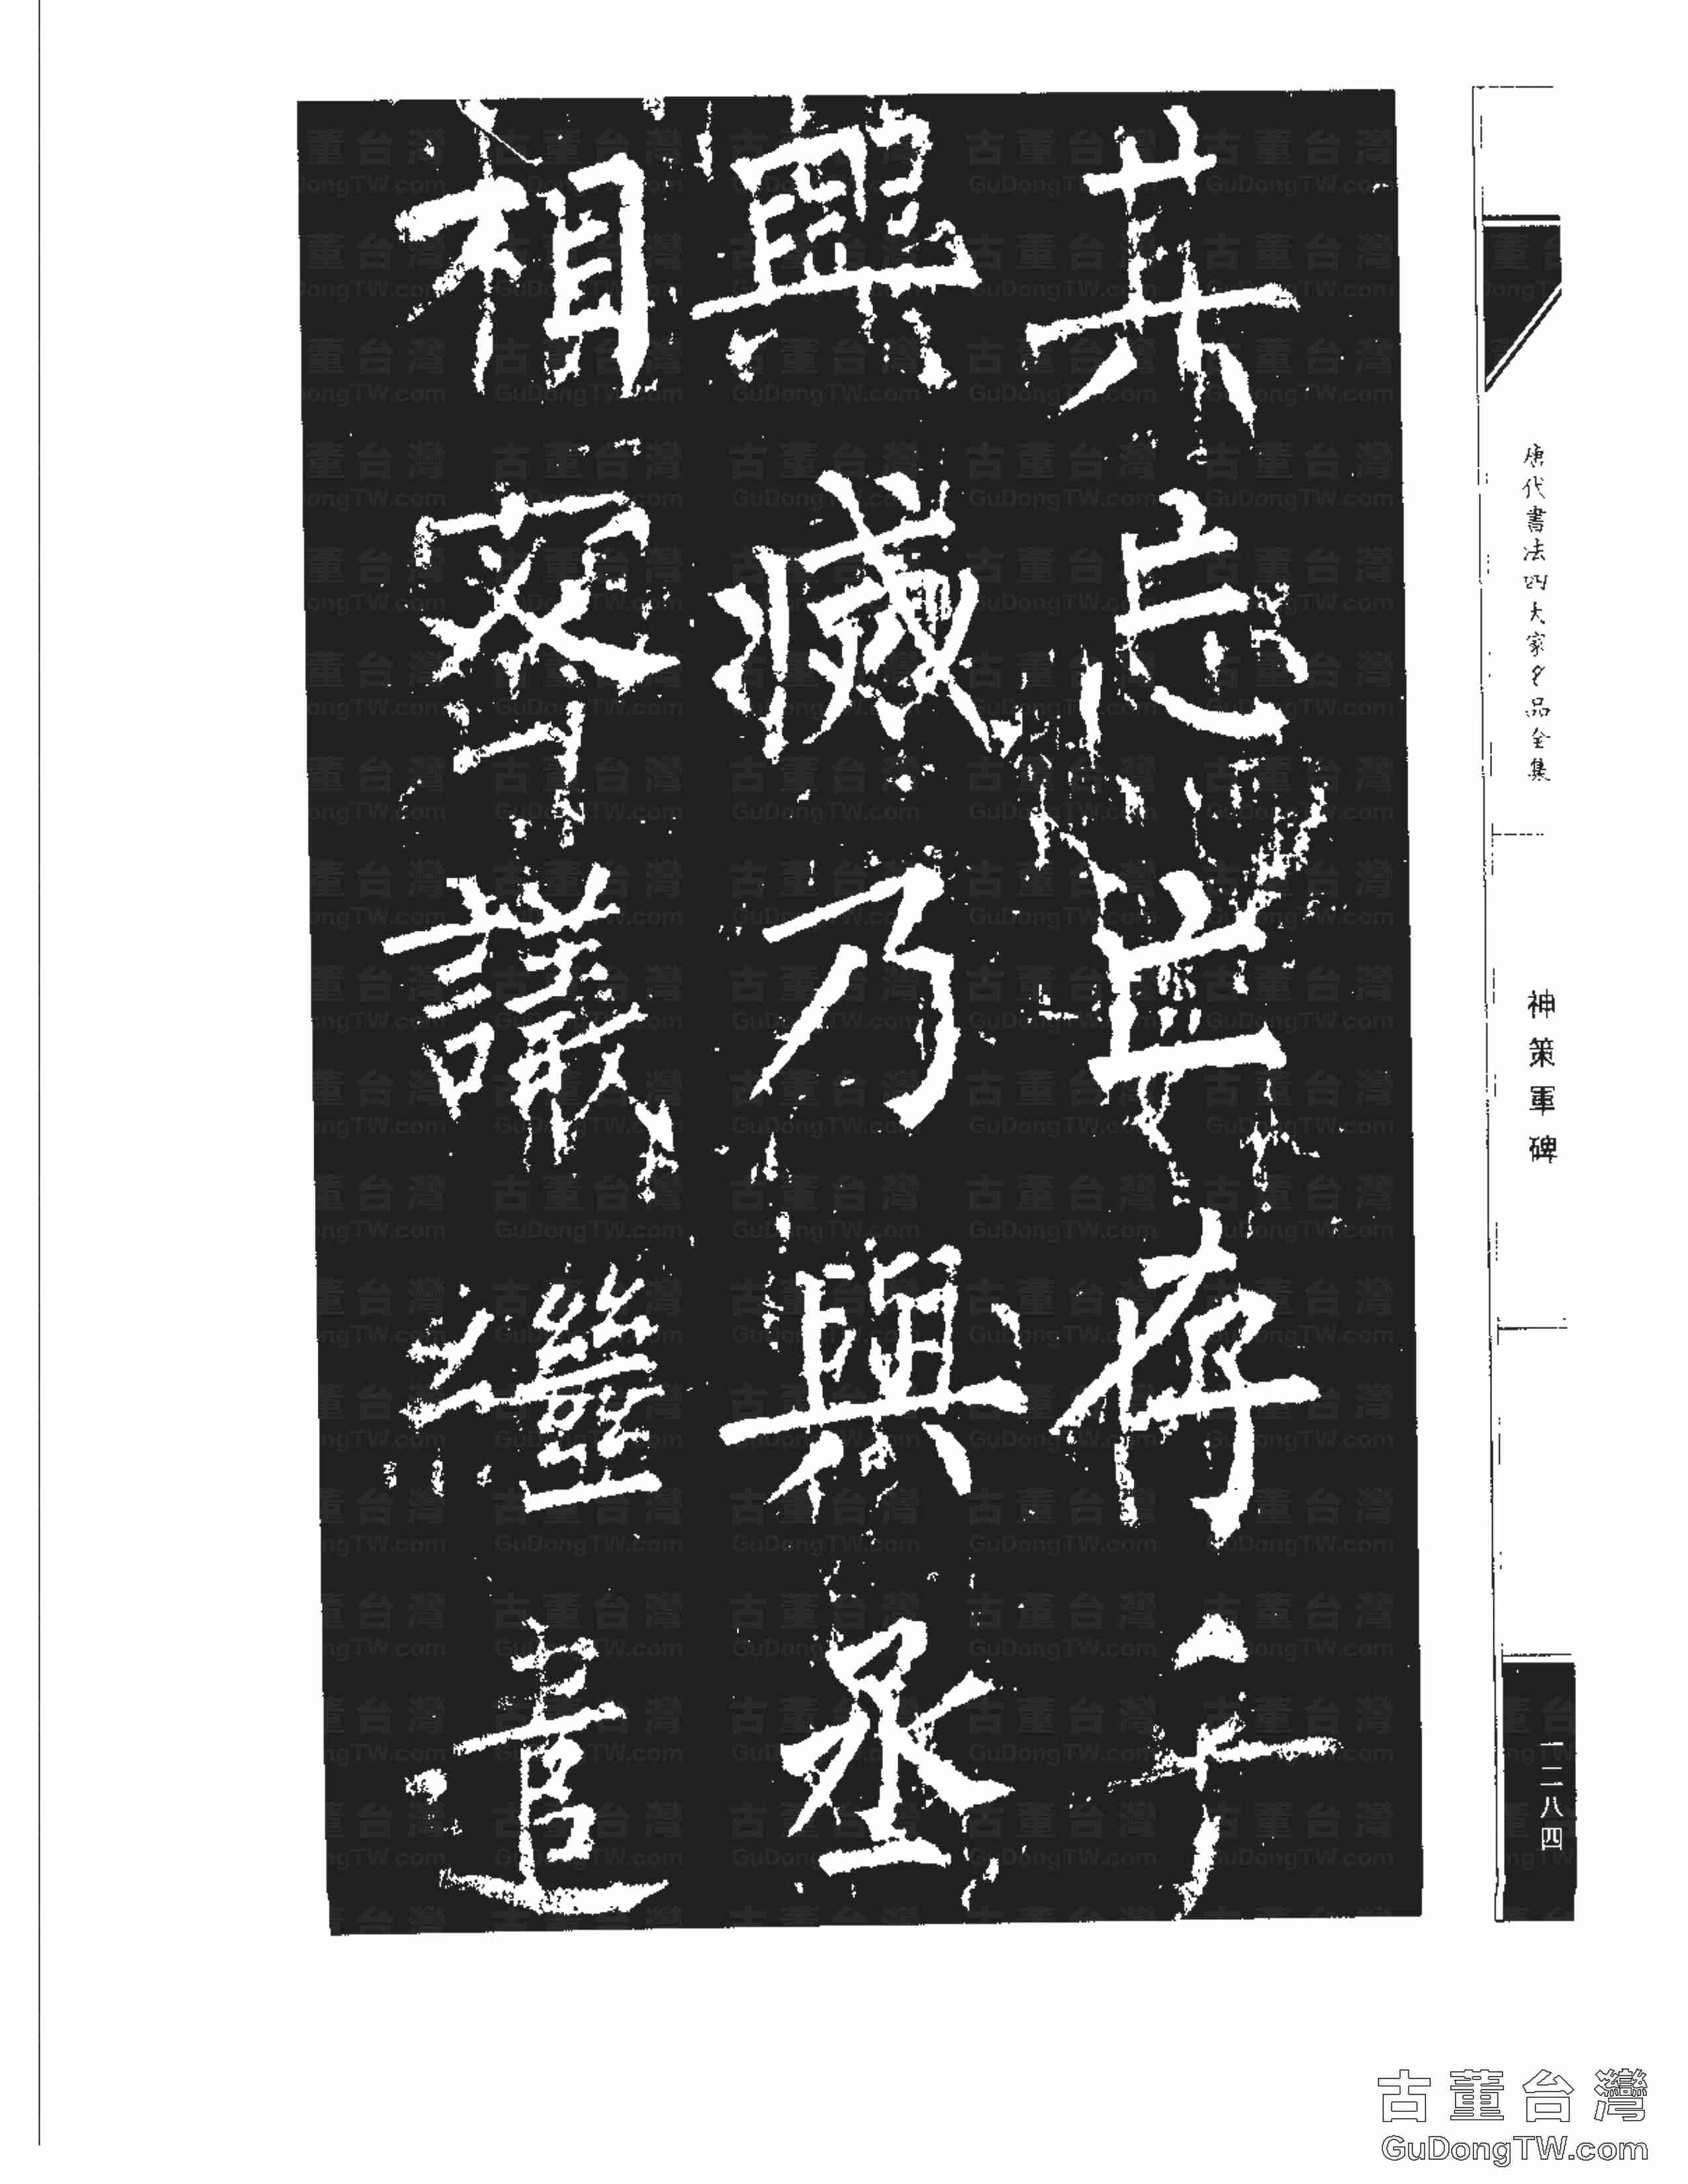 其忘存乎
興滅乃與丞
相密議繼遣
唐代書法四大家名品全集
神策軍碑
一二八四
古董台灣
GuDongTW.com